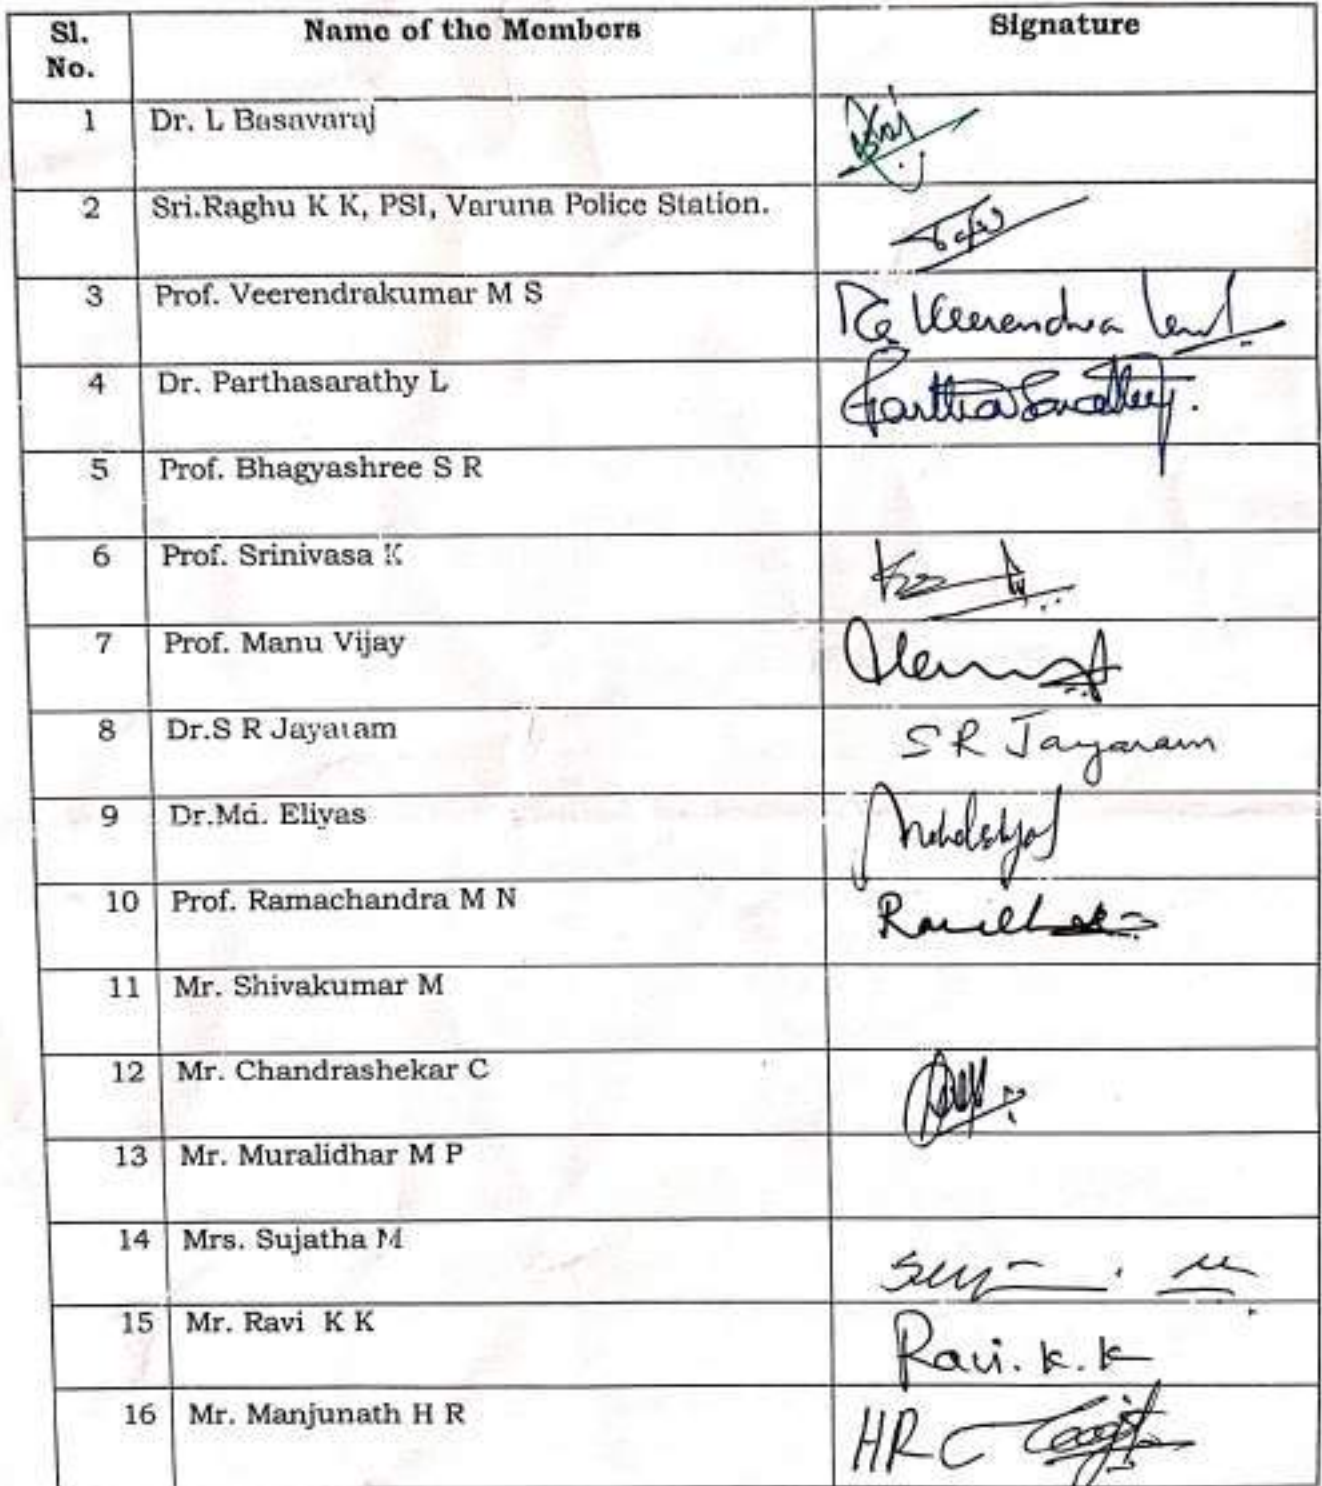 Sl. No. Name of the Members Signature
1 Dr. L Basavaraj
2 Sri.Raghu K K, PSI, Varuna Police Station.
3 Prof. Veerendrakumar M S Veerendra
4 Dr. Parthasarathy L ParthaSarathy.
5 Prof. Bhagyashree S R
6 Prof. Srinivasa K
7 Prof. Manu Vijay
8 Dr.S R Jayaram S R Jayaram
9 Dr.Md. Eliyas
10 Prof. Ramachandra M N
11 Mr. Shivakumar M
12 Mr. Chandrashekar C
13 Mr. Muralidhar M P
14 Mrs. Sujatha M
15 Mr. Ravi K K Ravi. K. K
16 Mr. Manjunath H R HR